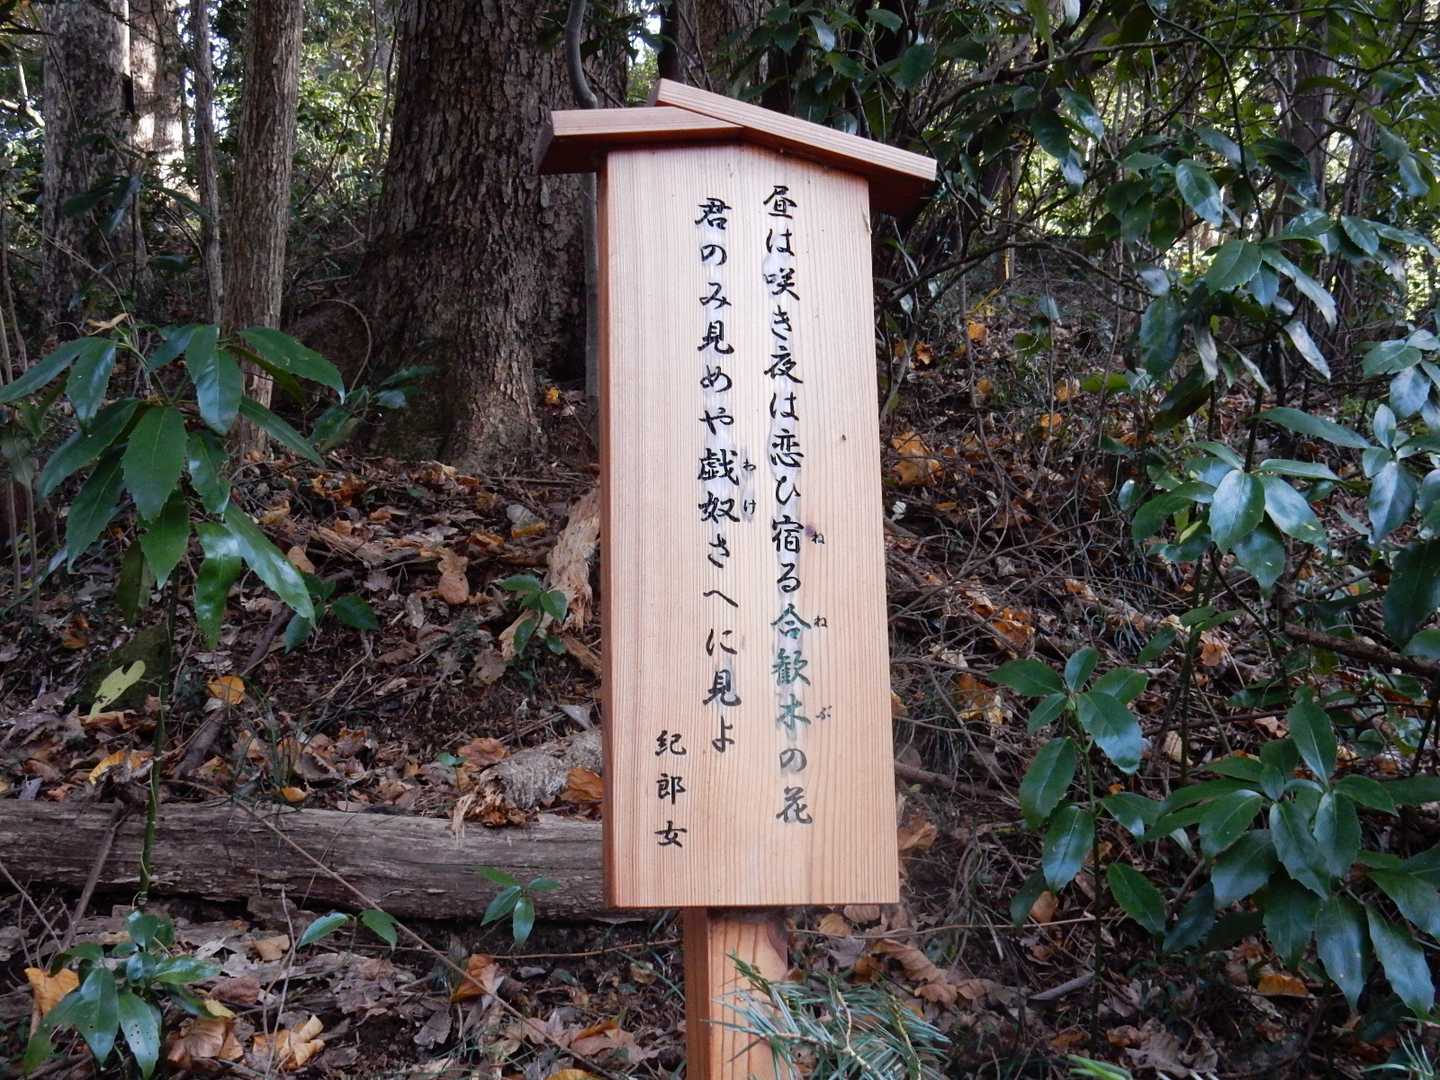 昼は咲き夜は恋ひ宿る合歓木の花
ね
ねぶ
君のみ見めや戯奴さへに見よ
わけ
紀郎女